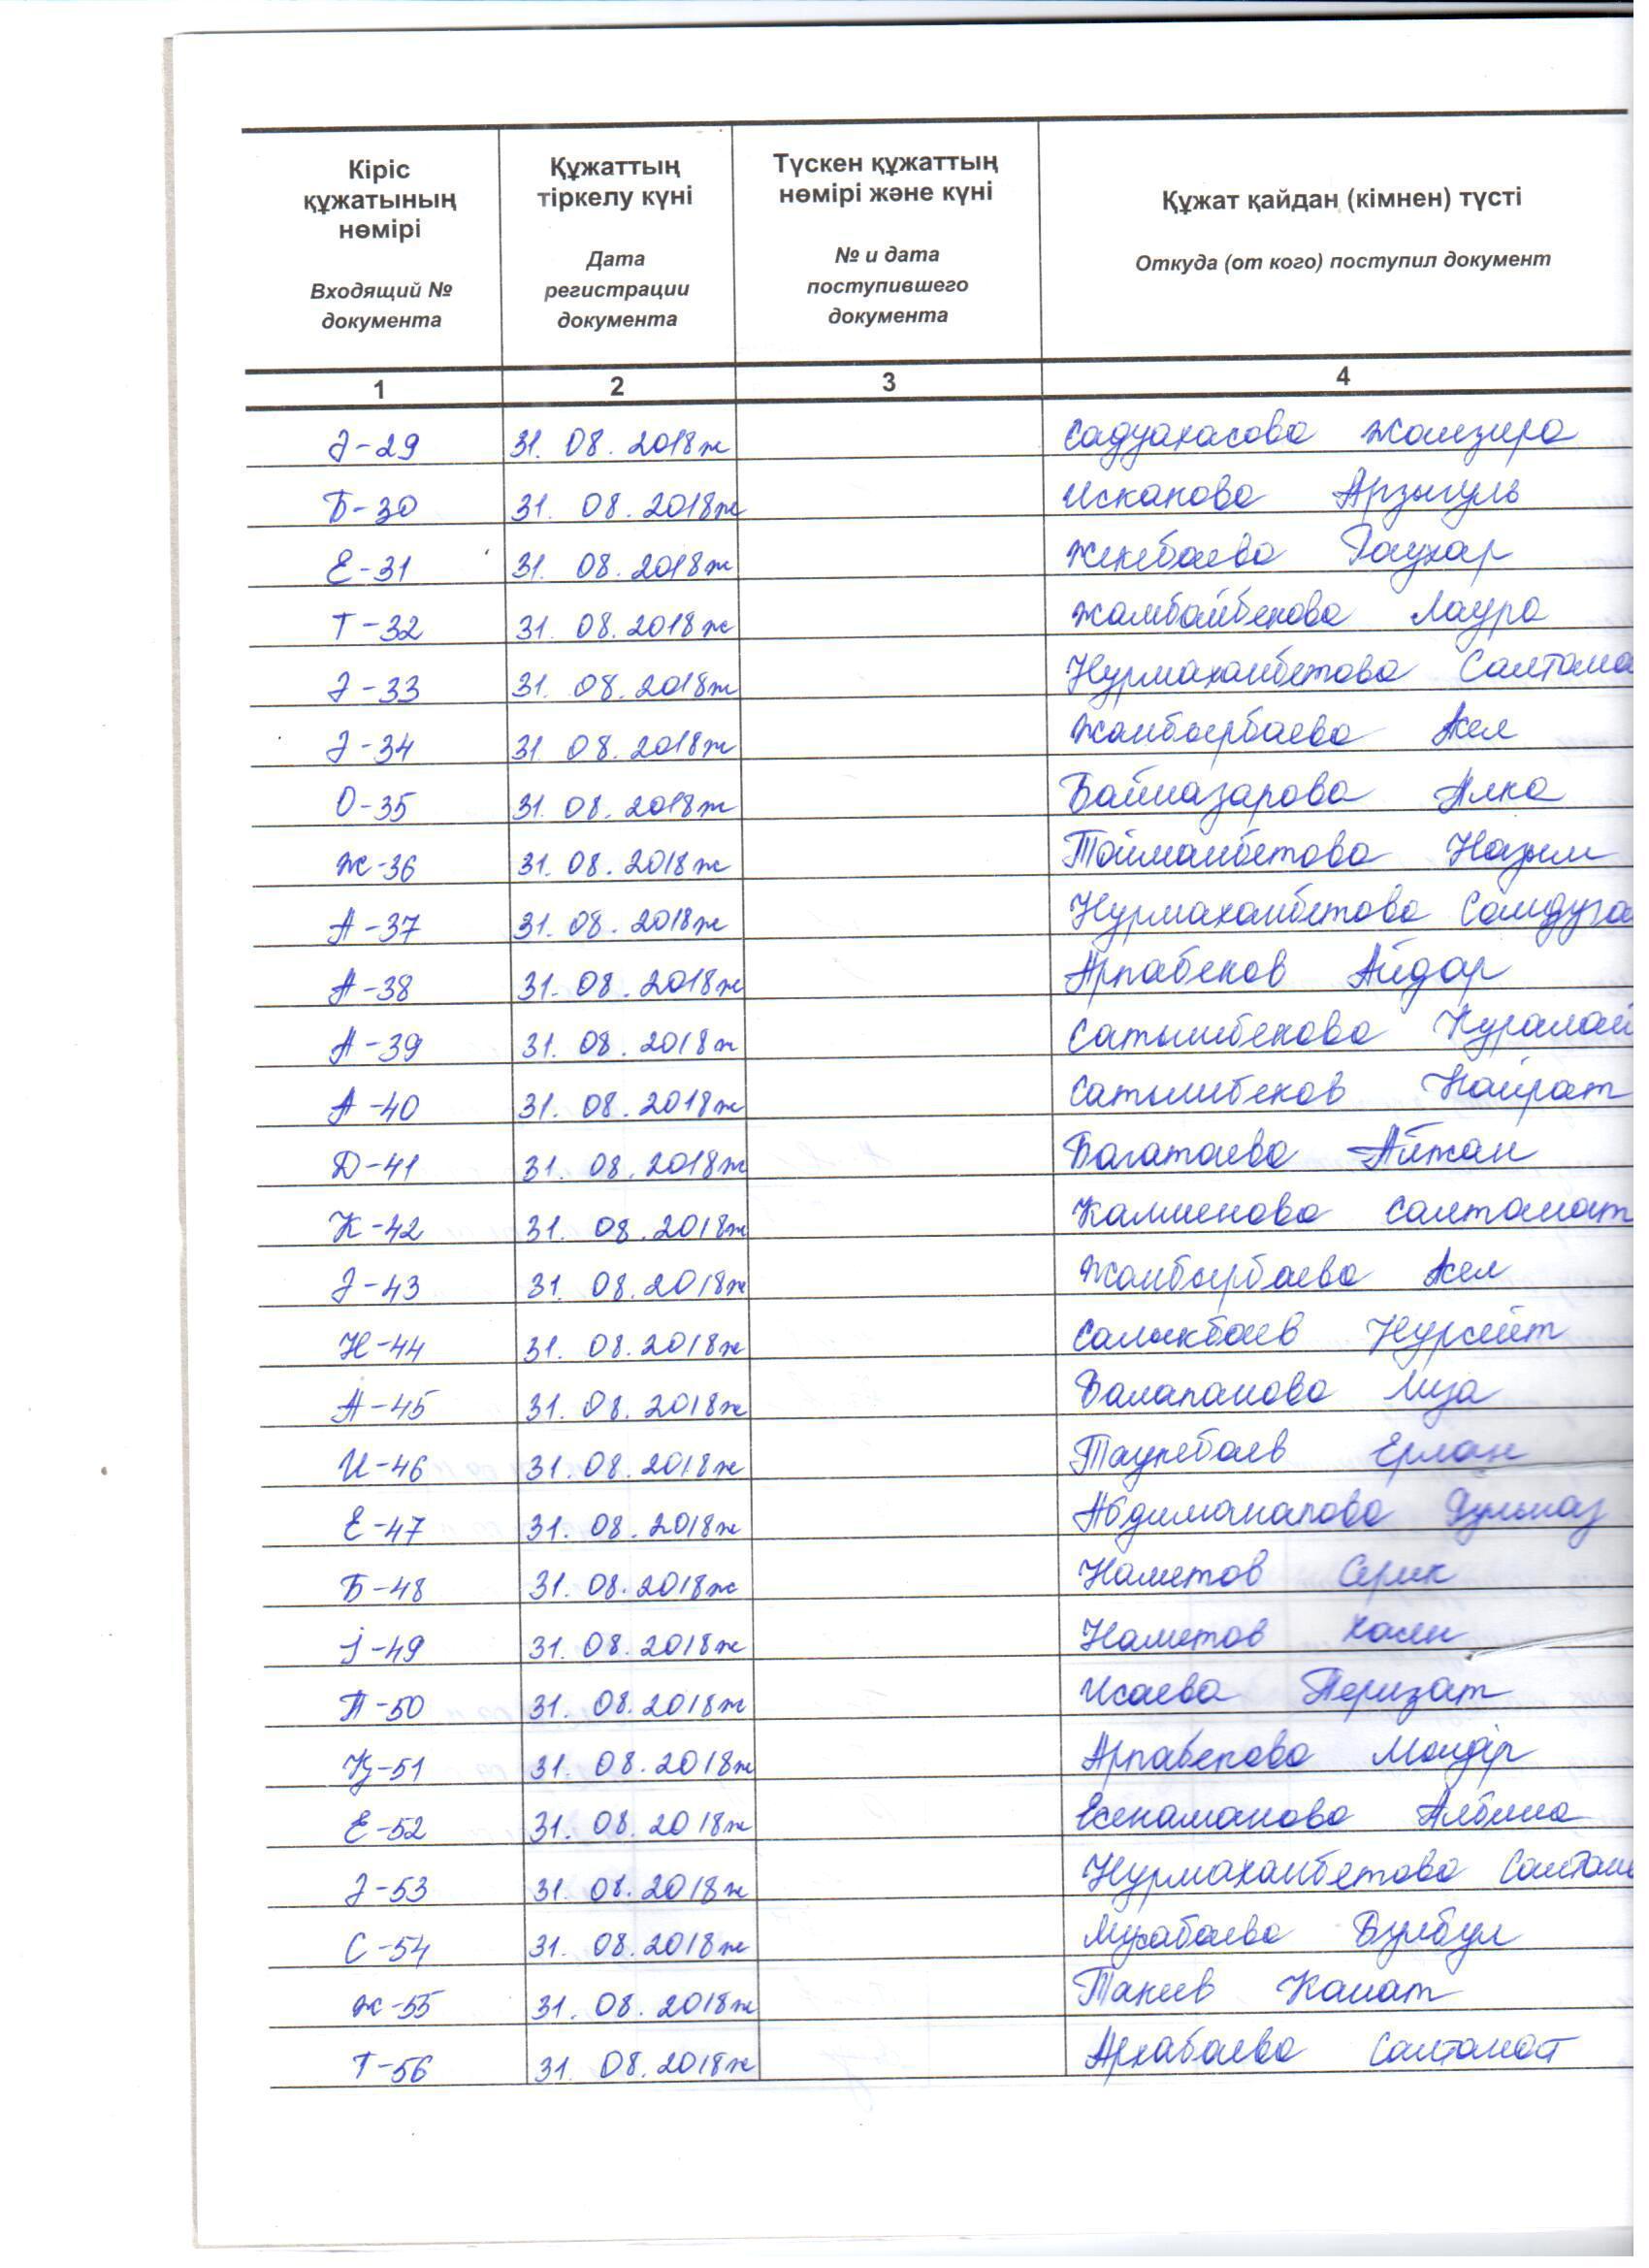 Кіріс құжатының нөмірі
Входящий № документа
Құжаттың тіркелу күні
Дата регистрации документа
Түскен құжаттың нөмірі және күні
№ и дата поступившего документа
Құжат қайдан (кімнен) түсті
Откуда (от кого) поступил документ
1 2 3 4
Ә-29 31. 08. 2018ж Садуахасова Жамзира
Б-30 31. 08. 2018ж Искакова Арзыгуль
Е-31 31. 08. 2018ж Жекебаева Гаухар
Т-32 31. 08. 2018ж Жамбайбекова Лаура
Ә-33 31. 08. 2018ж Нурмаханбетова Салтана
Ә-34 31. 08. 2018ж Жанбырбаева Асел
О-35 31. 08. 2018ж Баймазарова Алма
Ж-36 31. 08. 2018ж Тойманбетова Назым
А-37 31. 08. 2018ж Нурмаханбетова Сандуга
А-38 31. 08. 2018ж Арпабеков Айдар
А-39 31. 08. 2018ж Сатымбекова Куралай
А-40 31. 08. 2018ж Сатымбеков Кайрат
Д-41 31. 08. 2018ж Багатаева Айжан
К-42 31. 08. 2018ж Калменова Салтанат
Ә-43 31. 08. 2018ж Жанбырбаева Асел
Н-44 31. 08. 2018ж Салыкбаев Нурсейт
А-45 31. 08. 2018ж Балапанова Лиза
И-46 31. 08. 2018ж Таукебаев Ерлан
Е-47 31. 08. 2018ж Абдиманапова Гульназ
Б-48 31. 08. 2018ж Наметов Серик
І-49 31. 08. 2018ж Наметов Хасен
П-50 31. 08. 2018ж Исаева Перизат
Құ-51 31. 08. 2018ж Арпабекова Молдір
Е-52 31. 08. 2018ж Есенаманова Албина
Ә-53 31. 08. 2018ж Нурмаханбетова Салтан
С-54 31. 08. 2018ж Мусабаева Булбул
Ж-55 31. 08. 2018ж Такеев Канат
Т-56 31. 08. 2018ж Архабаева Салтанат